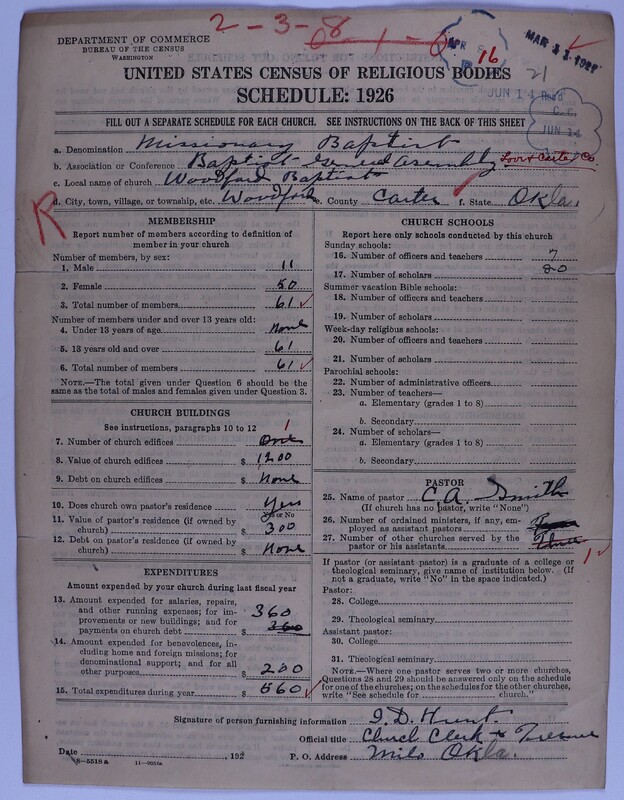 2-3-8
DEPARTMENT OF COMMERCE
BUREAU OF THE CENSUS
WASHINGTON
APR
16
21
JUN 14
JUN 14
UNITED STATES CENSUS OF RELIGIOUS BODIES
SCHEDULE: 1926
FILL OUT A SEPARATE SCHEDULE FOR EACH CHURCH. SEE INSTRUCTIONS ON THE BACK OF THIS SHEET
a. Denomination Missionary Baptist
b. Association or Conference Baptist General Asembly Love & Carter Co
c. Local name of church Woodford Baptist
d. City, town, village, or township, etc. Woodford e. County Carter f. State Okla.
R
MEMBERSHIP
Report number of members according to definition of
member in your church
Number of members, by sex:
1. Male 11
2. Female 50
3. Total number of members 61
Number of members under and over 13 years old:
4. Under 13 years of age None
5. 13 years old and over 61
6. Total number of members 61
NOTE.—The total given under Question 6 should be
the same as the total of males and females given under Question 3.
CHURCH BUILDINGS
See instructions, paragraphs 10 to 12
1
7. Number of church edifices One
8. Value of church edifices $ 1200
9. Debt on church edifices $ None
10. Does church own pastor's residence Yes
Yes or No
11. Value of pastor's residence (if owned by
church) $ 300
12. Debt on pastor's residence (if owned by
church) $ None
EXPENDITURES
Amount expended by your church during last fiscal year
13. Amount expended for salaries, repairs,
and other running expenses; for im-
provements or new buildings; and for
payments on church debt $ 360
360
14. Amount expended for benevolences, in-
cluding home and foreign missions; for
denominational support; and for all
other purposes $ 200
15. Total expenditures during year $ 560
CHURCH SCHOOLS
Report here only schools conducted by this church
Sunday schools:
16. Number of officers and teachers 7
17. Number of scholars 80
Summer vacation Bible schools:
18. Number of officers and teachers
19. Number of scholars
Week-day religious schools:
20. Number of officers and teachers
21. Number of scholars
Parochial schools:
22. Number of administrative officers
23. Number of teachers—
a. Elementary (grades 1 to 8)
b. Secondary
24. Number of scholars—
a. Elementary (grades 1 to 8)
b. Secondary
PASTOR
25. Name of pastor C.A. Smith
(If church has no pastor, write "None")
26. Number of ordained ministers, if any, em-
ployed as assistant pastors
27. Number of other churches served by the
pastor or his assistants Three
1
If pastor (or assistant pastor) is a graduate of a college or
theological seminary, give name of institution below. (If
not a graduate, write "No" in the space indicated.)
Pastor:
28. College
29. Theological seminary
Assistant pastor:
30. College
31. Theological seminary
NOTE.—Where one pastor serves two or more churches,
Questions 28 and 29 should be answered only on the schedule
for one of the churches; on the schedules for the other churches,
write "See schedule for church."
Signature of person furnishing information I.D. Hunt
Official title Church Clerk &
Date , 192 P. O. Address Milo Okla.
8-5518a 11-9056a